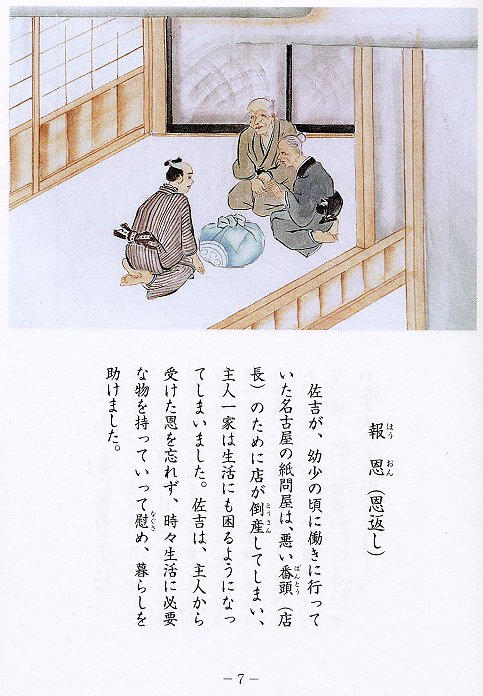 報恩（恩返し）
ほうおん
佐吉が、幼少の頃に働きに行って
いた名古屋の紙問屋は、悪い番頭（店
ばんとう
長）のために店が倒産してしまい、
とうさん
主人一家は生活にも困るようになっ
てしまいました。佐吉は、主人から
受けた恩を忘れず、時々生活に必要
な物を持っていって慰め、暮らしを
なぐさ
助けました。
－7－